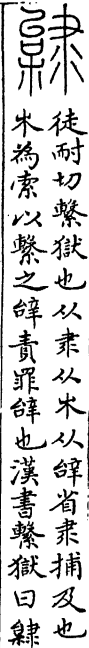 徒耐切繫獄也从隶从木从辥省隶捕及也
木為索以繫之辥責罪辥也漢書繫獄曰